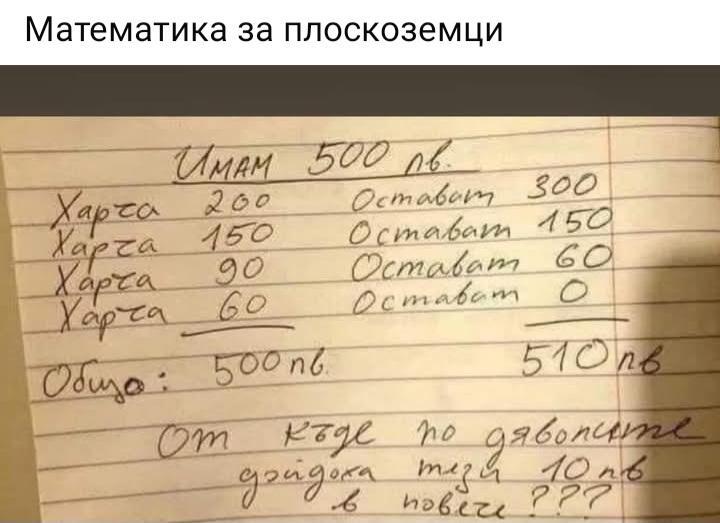 Математика за плоскоземци
Имам 500 лв.
Харча 200 Остават 300
Харча 150 Остават 150
Харча 90 Остават 60
Харча 60 Остават 0
Общо: 500 лв. 510 лв
От къде по дяволите
дойдоха тези 10 лв
в повече ???